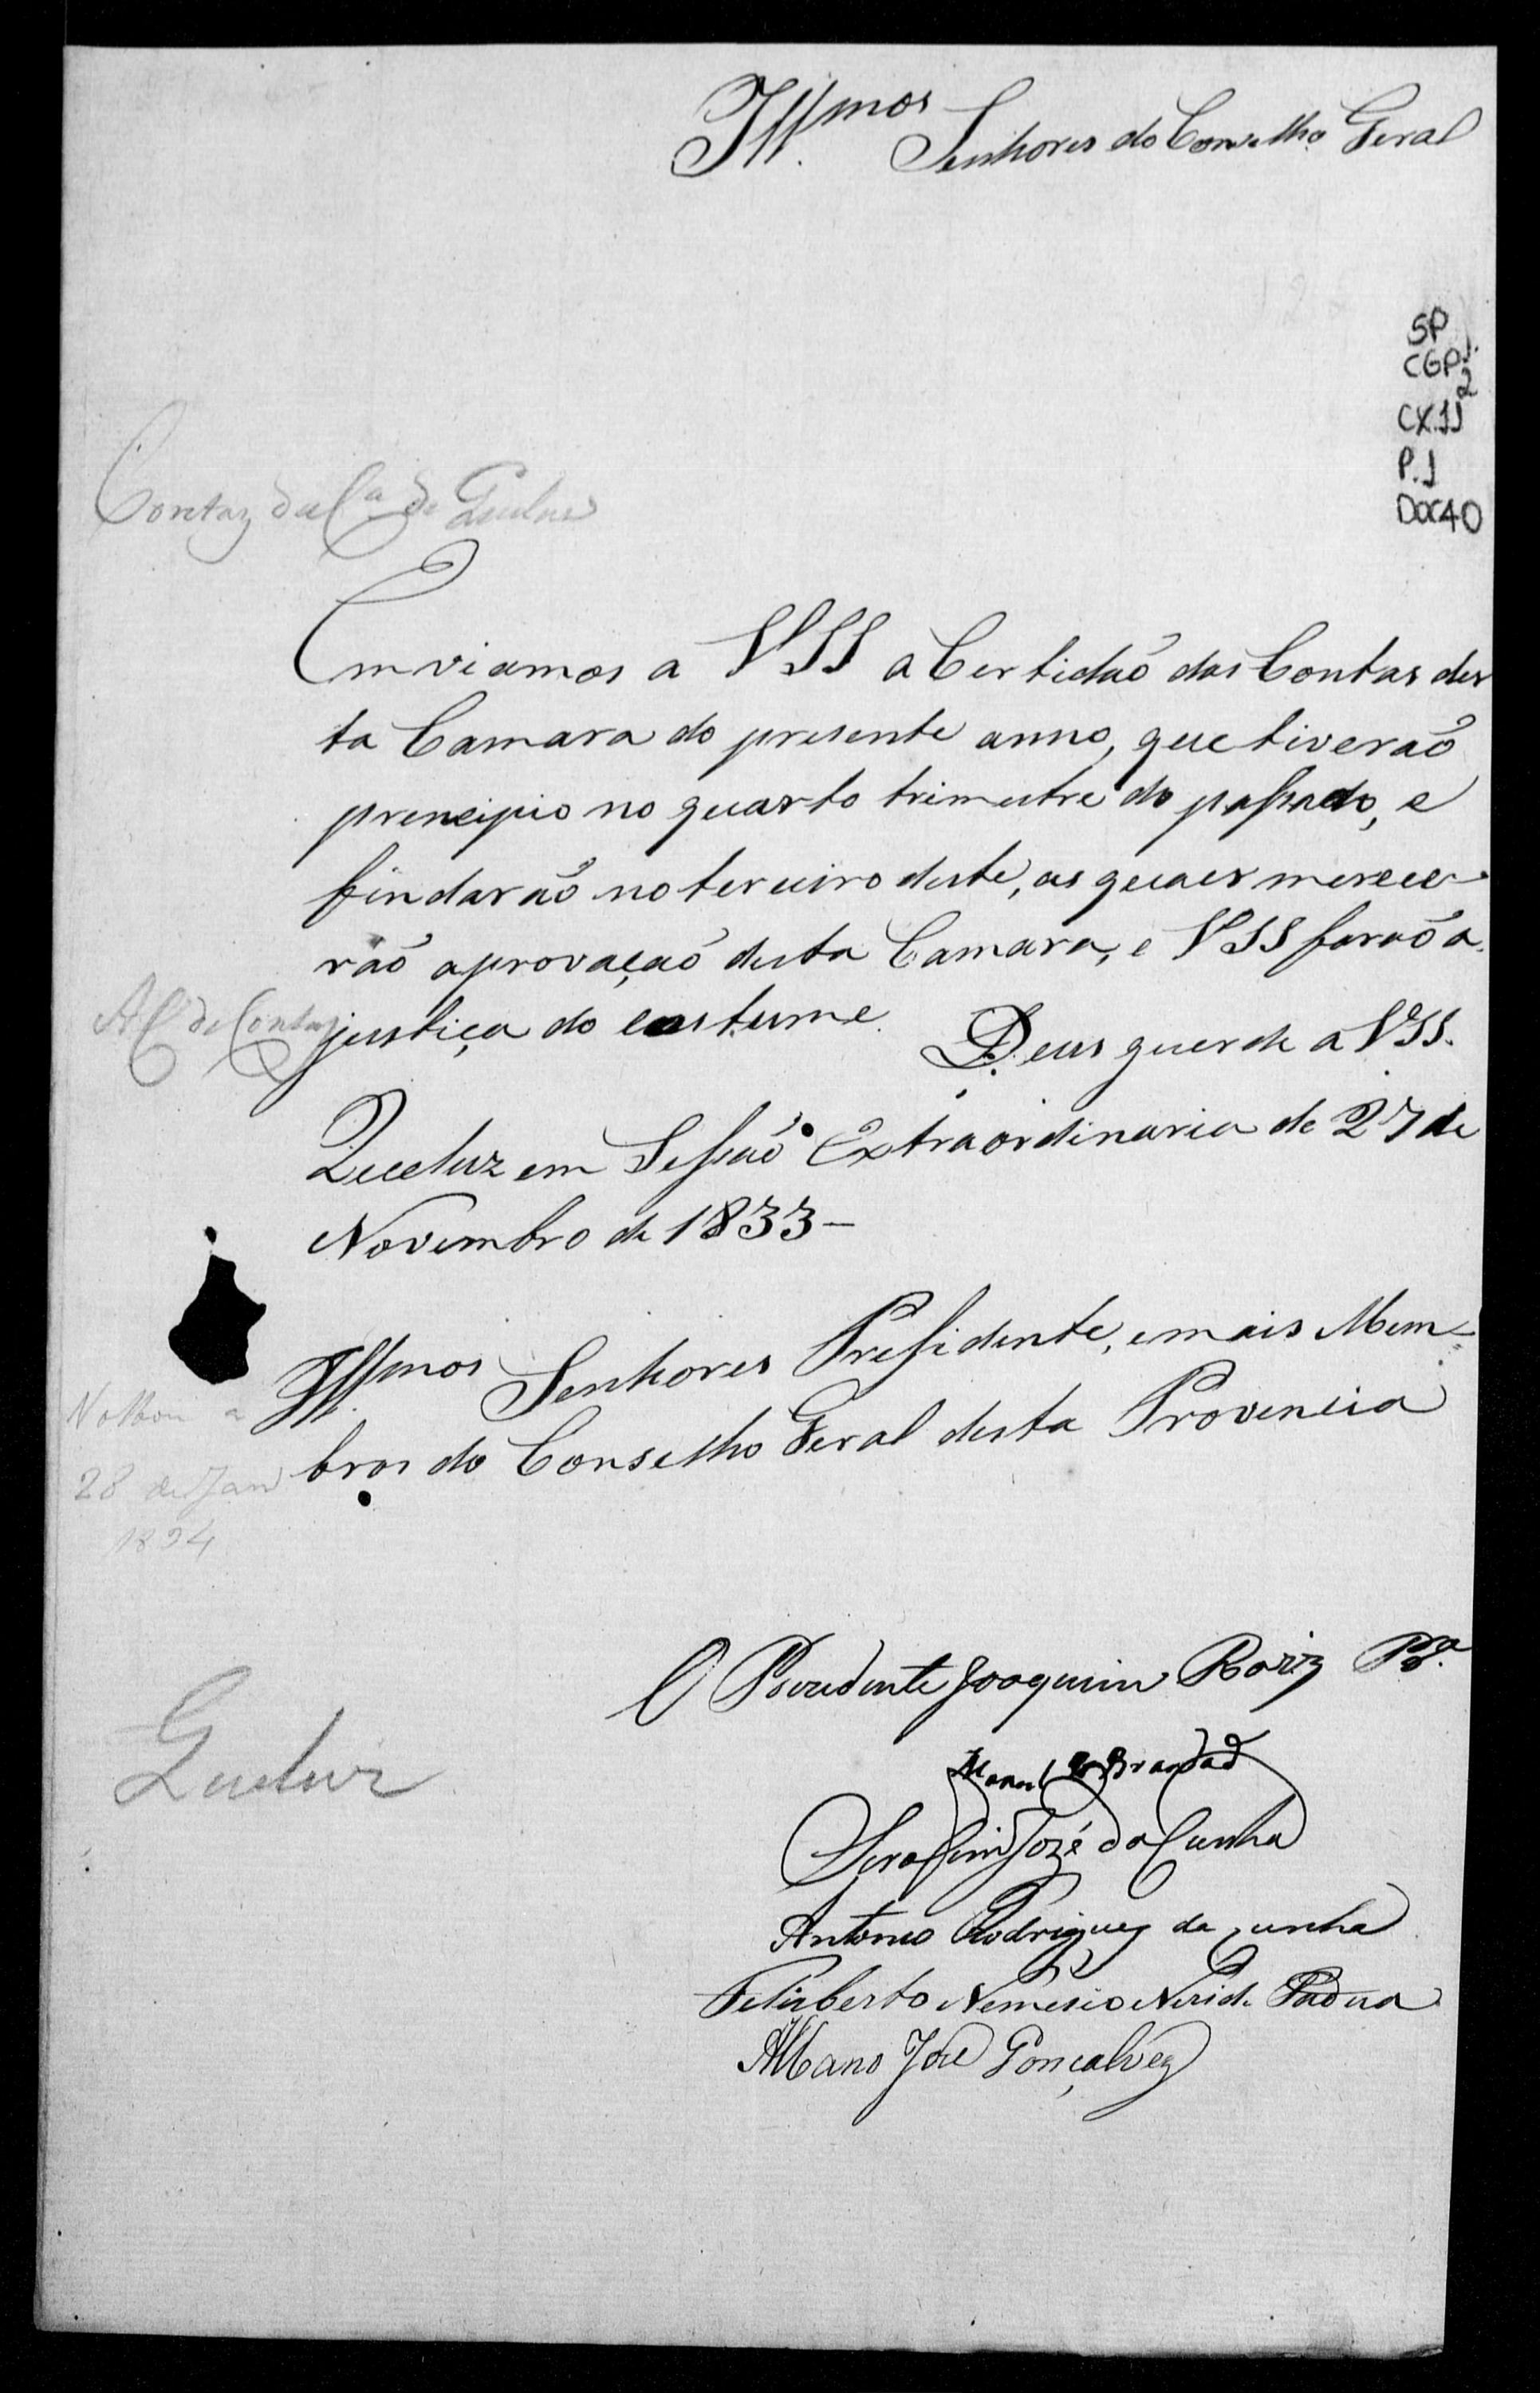 Illmos Senhores do Conselho Geral
SP
CGP1.
2
CX.11
P.1
DOC40
Contaz da Ca de Queluz
Emviamos a VSS a Certidaõ das Contas des
ta Camara do presente anno, que tiveraõ
prencipio no quarto trimestre do passado, e
findaraõ no terceiro deste, as quaes merece-
raõ aprovaçaõ desta Camara, e VSS faraõ a
justiça do custume. Deus guarde a VSS.
A C. de Contaz
Queeluz em Sessaõ Extraordinaria de 27 de
Novembro de 1833-
Illmos Senhores Presidente, e mais Mem-
bros do Conselho Geral desta Provencia
a
28 de Janº
1834
O Prezidente Joaquim Roiz Pª
Manoel Brandaõ
Queluz
Serafim Jozé da Cunha
Antonio Rodrigues da Cunha
Feliberto Nemesio Neri de Padua
Albano Jose Gonçalvez